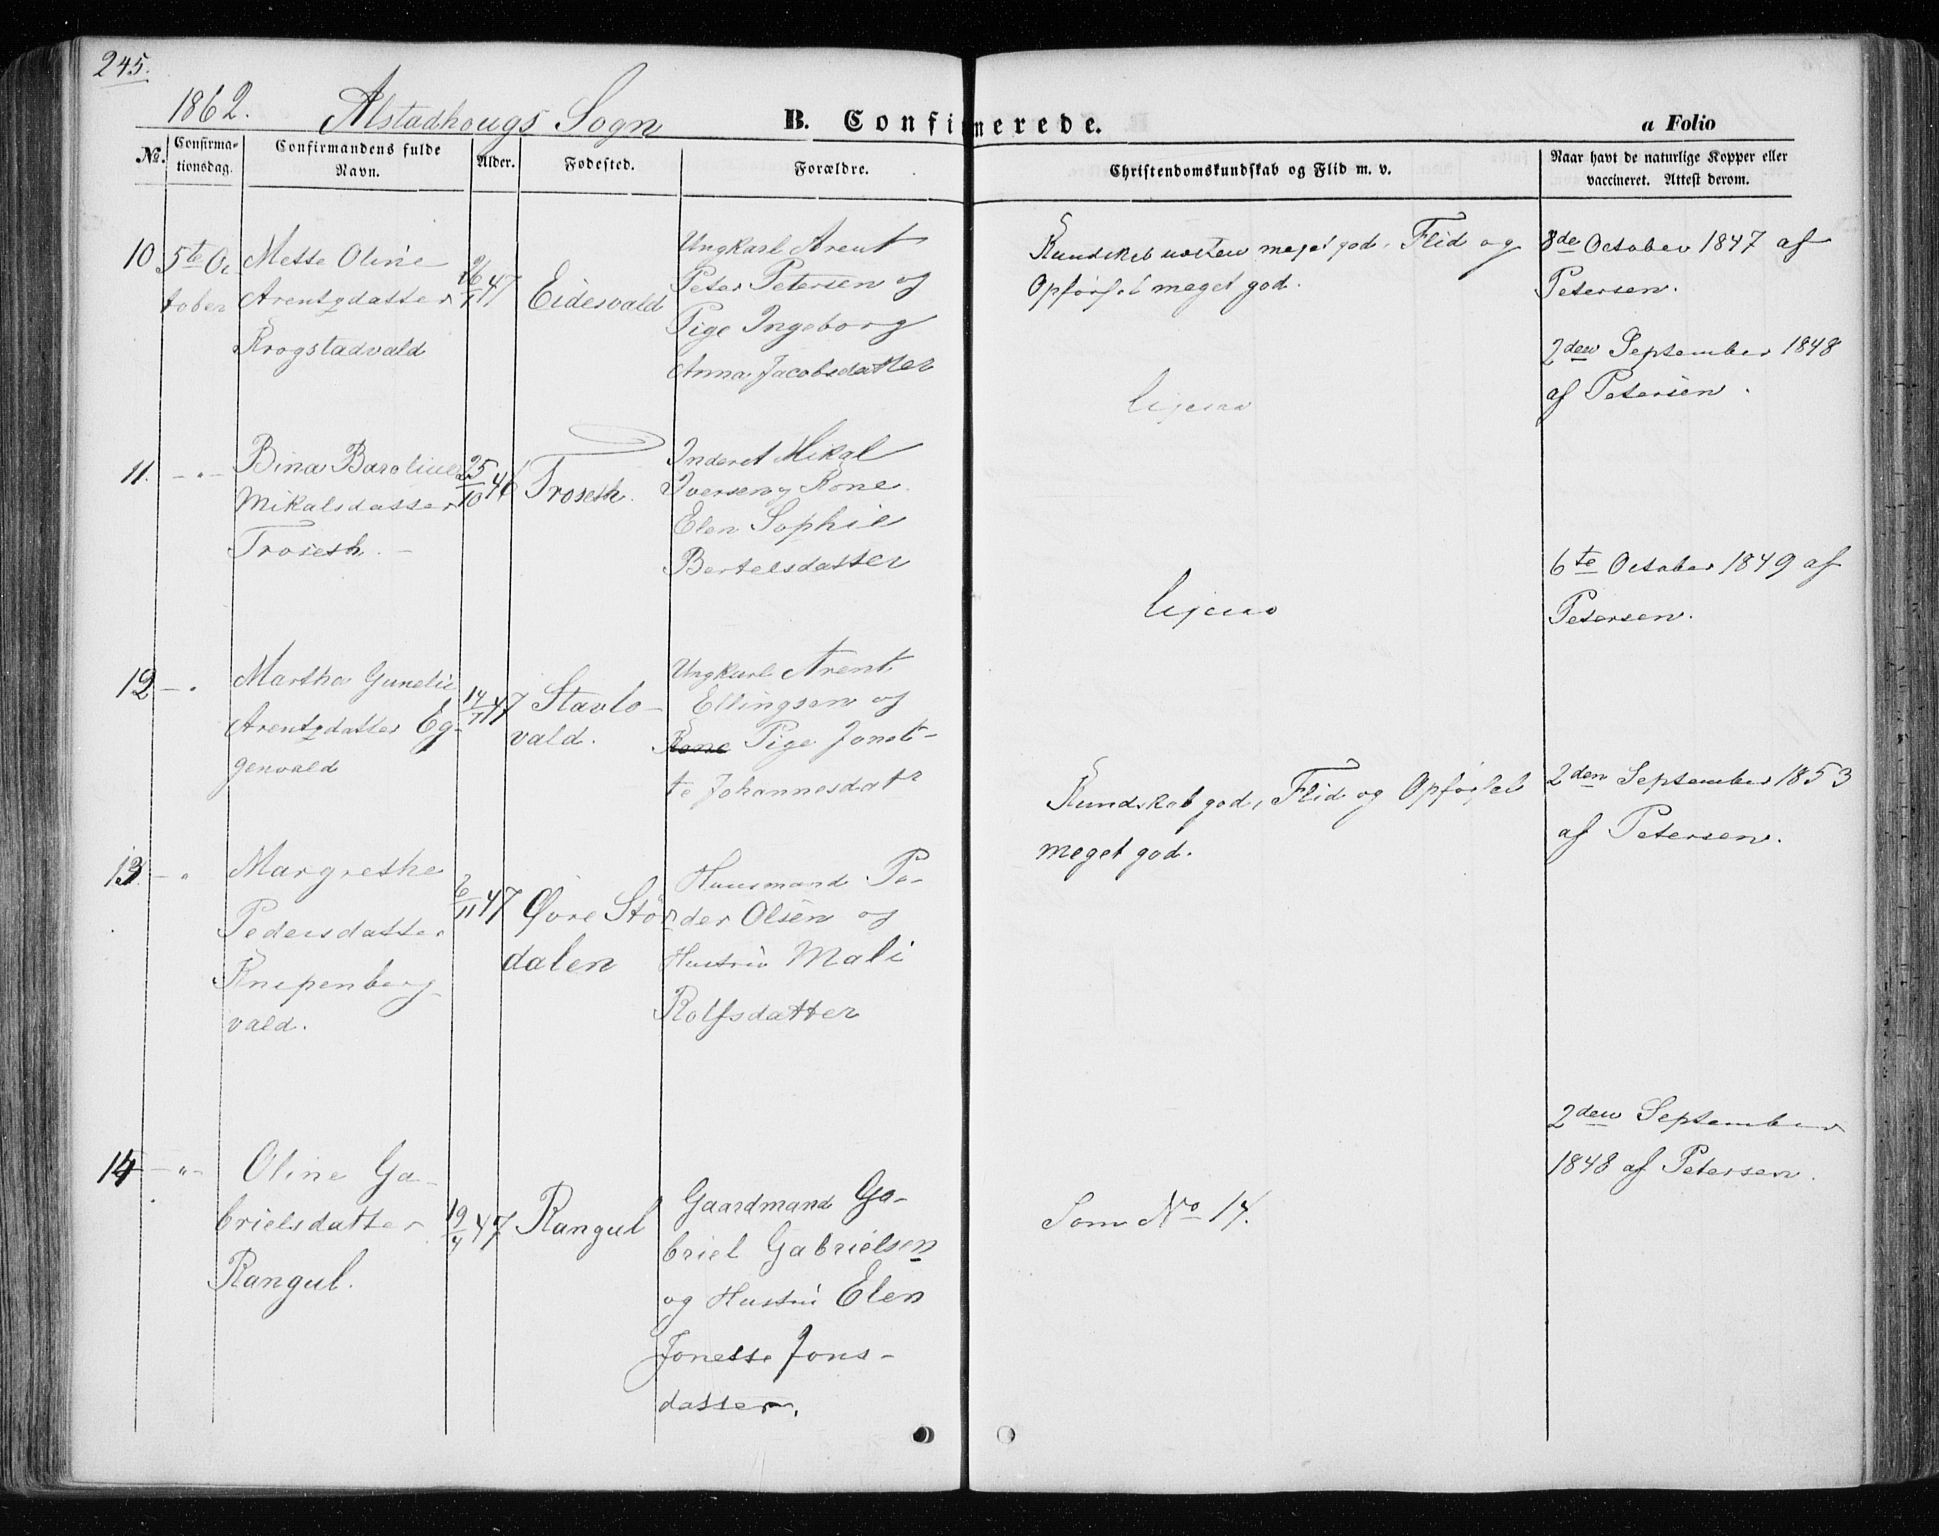 245.
1862. Alstadhougs Sogn
B. Confirmerede.
a Folio
No.
Confirmationsdag.
Confirmandens fulde Navn.
Alder.
Fødested.
Forældre.
Christendomskundskab og Flid m. v.
Naar havt de naturlige Kopper eller
vaccineret. Attest derom.
10 5te Oc
tober
Mette Oline
Arentzdatter
Krogstadvald
47
Eidesvald
Ungkarl Arent
Peter Petersen og
Pige Ingeborg
Anna Jacobsdatter
Kundskab næsten meget god. Flid og
Opførsel meget god.
8de October 1847 af
Petersen.
11. -"-
Bina Baroline
Mikalsdatter
Troseth. -
25/10 46
Troseth.
Inderst Mikal
Iversen og Kone
Elen Sophie
Bertelsdatter
ligesaa
2den September 1848
af Petersen.
12 -"
Martha Gunelie
Arentzdatter Eg-
genvald
14/7 47
Stavlo-
vald.
Ungkarl Arent
Ellingsen og
Kone Pige Jonet-
te Johannesdatr
ligesaa
6te October 1849 af
Petersen.
13. -"
Margrethe
Pedersdatter
Knipenberg-
vald.
6/11 47
Øvre Stør
dalen
Huusmand Pe-
der Olsen og
Hustru Mali
Rolfsdatter
Kundskab god, Flid og Opførsel
meget god.
2den September 1853
af Petersen.
14 -"-
Oline Ga-
brielsdatter
Rangul.
47
Rangul
Gaardmand Ga-
briel Gabrielsen
og Hustru Elen
Jonette Jons-
datter.
Som No 14.
2den September
1848 af Petersen.